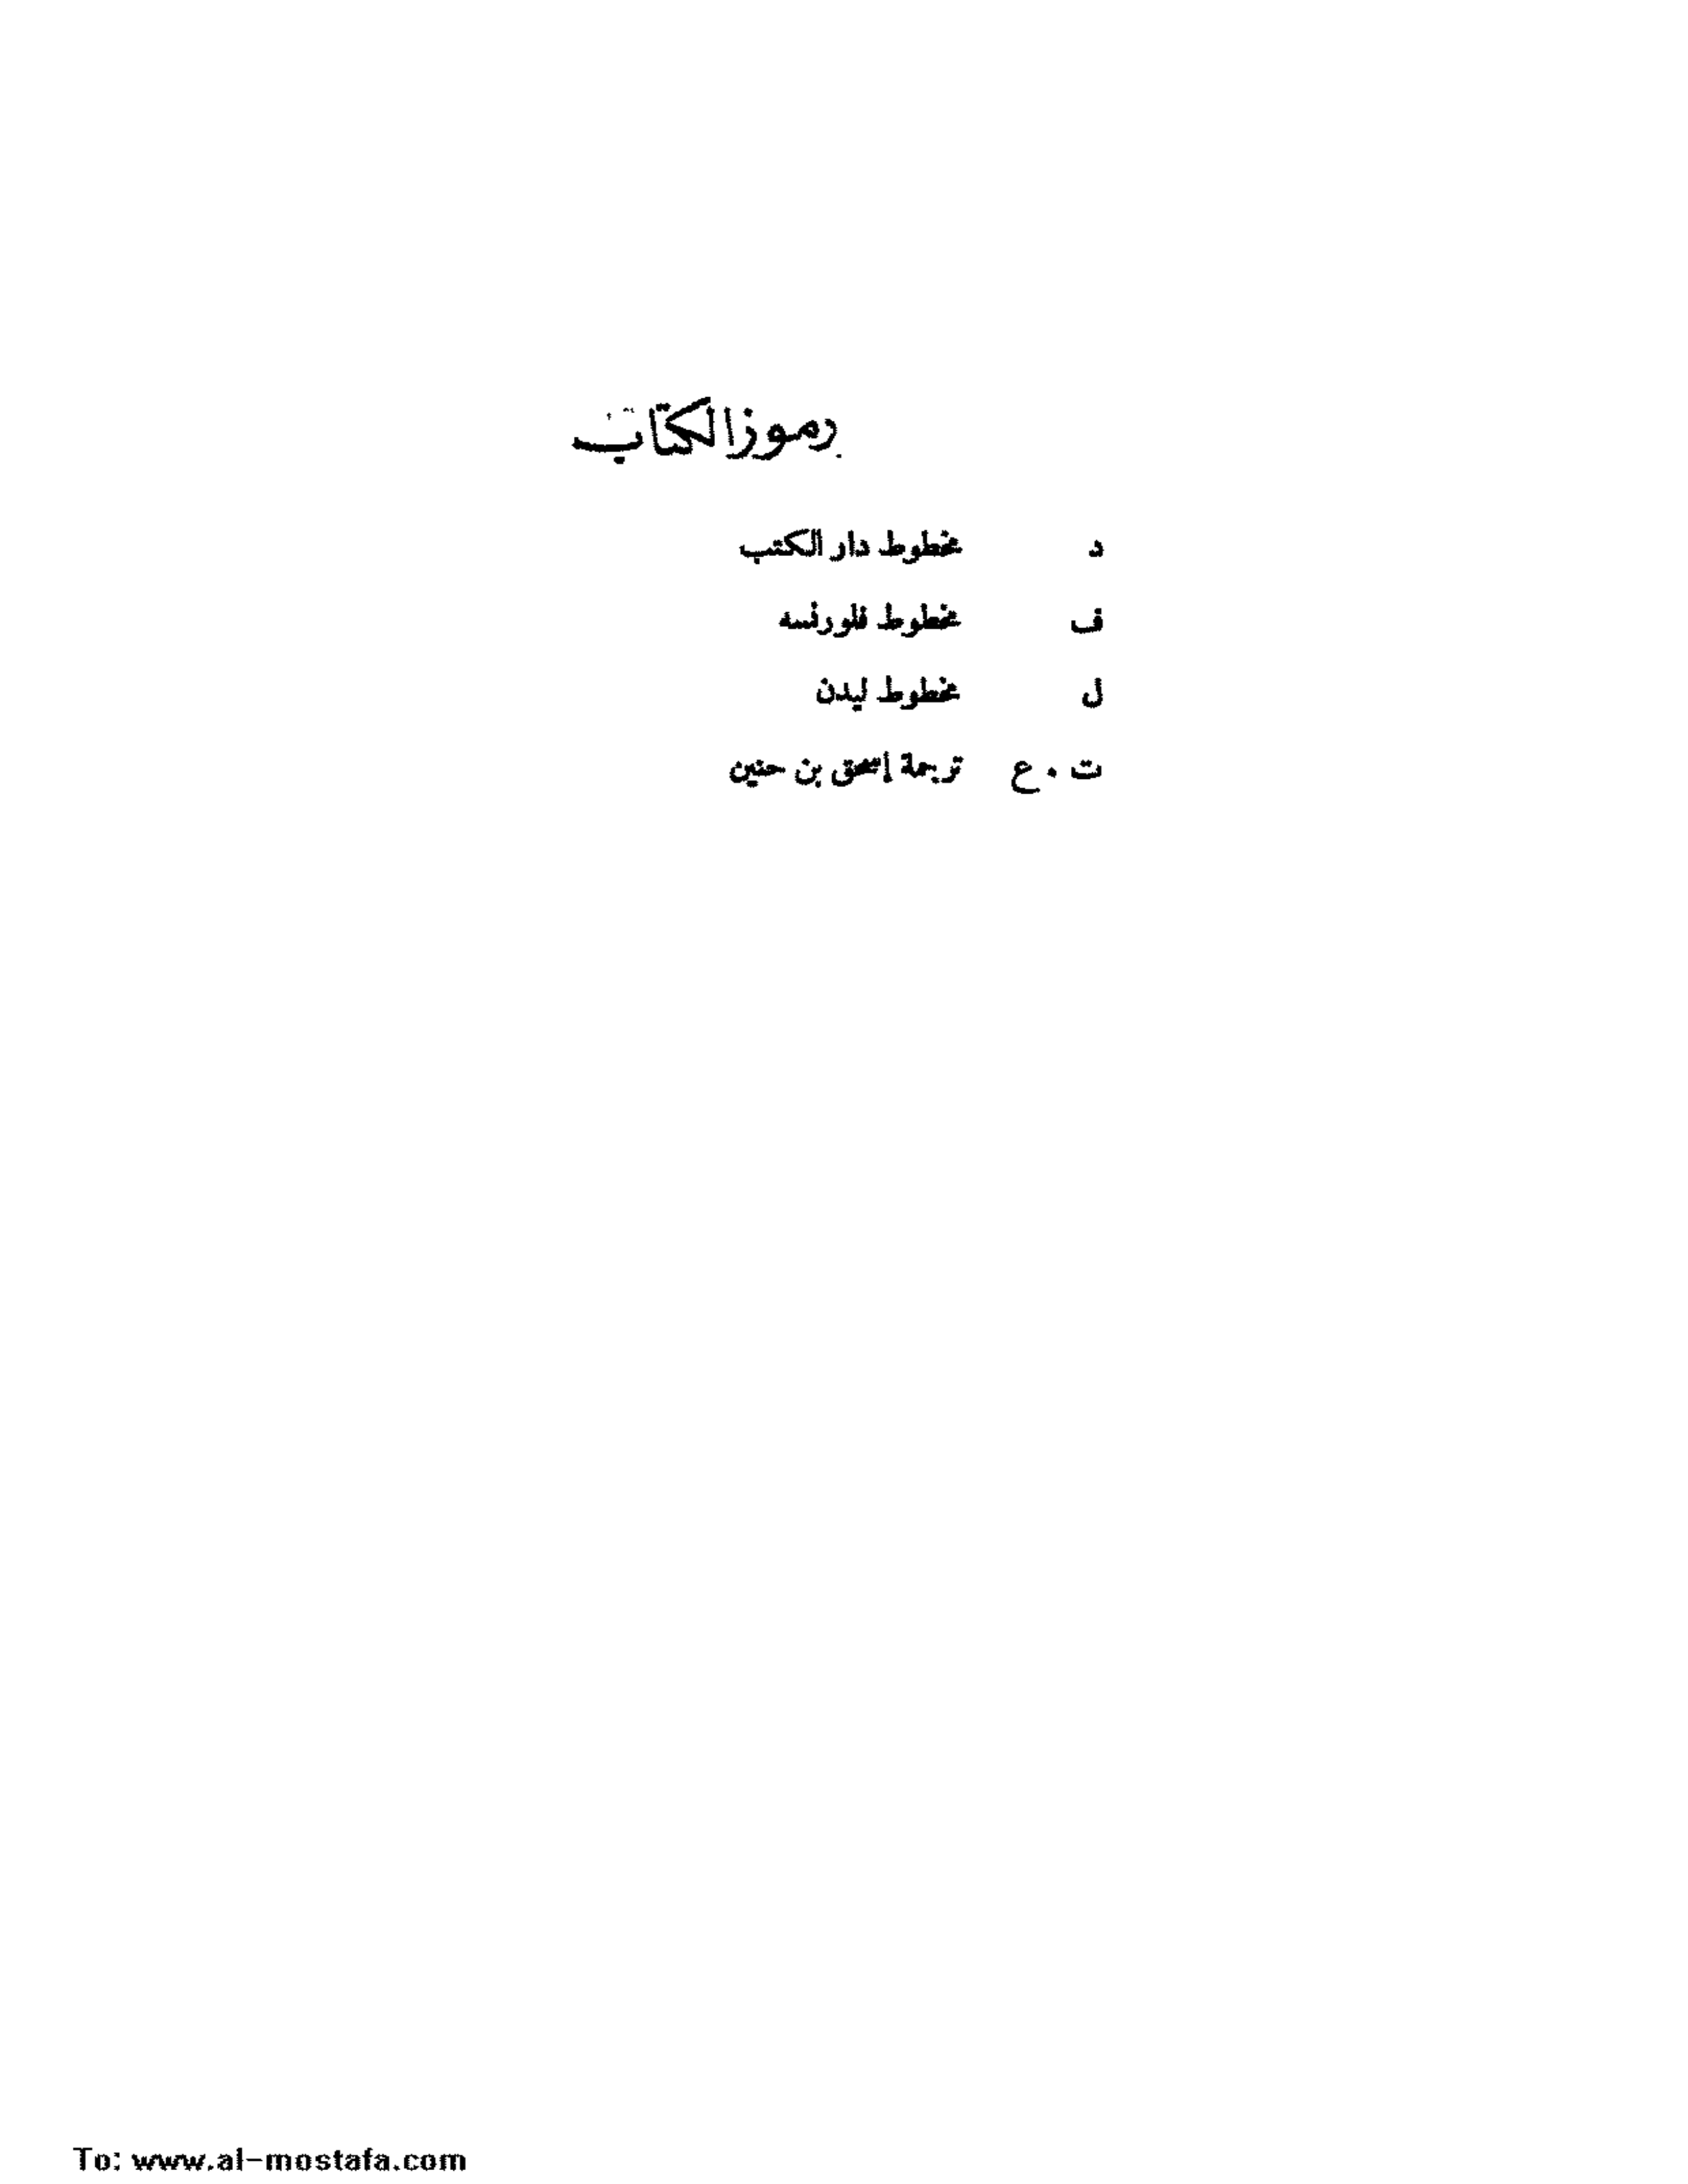 رموز الكتاب
د مخطوط دار الكتب
ف مخطوط فلورنسه
ل مخطوط ليدن
ت . ع ترجمة إسحق بن حنين
To: www.al-mostafa.com